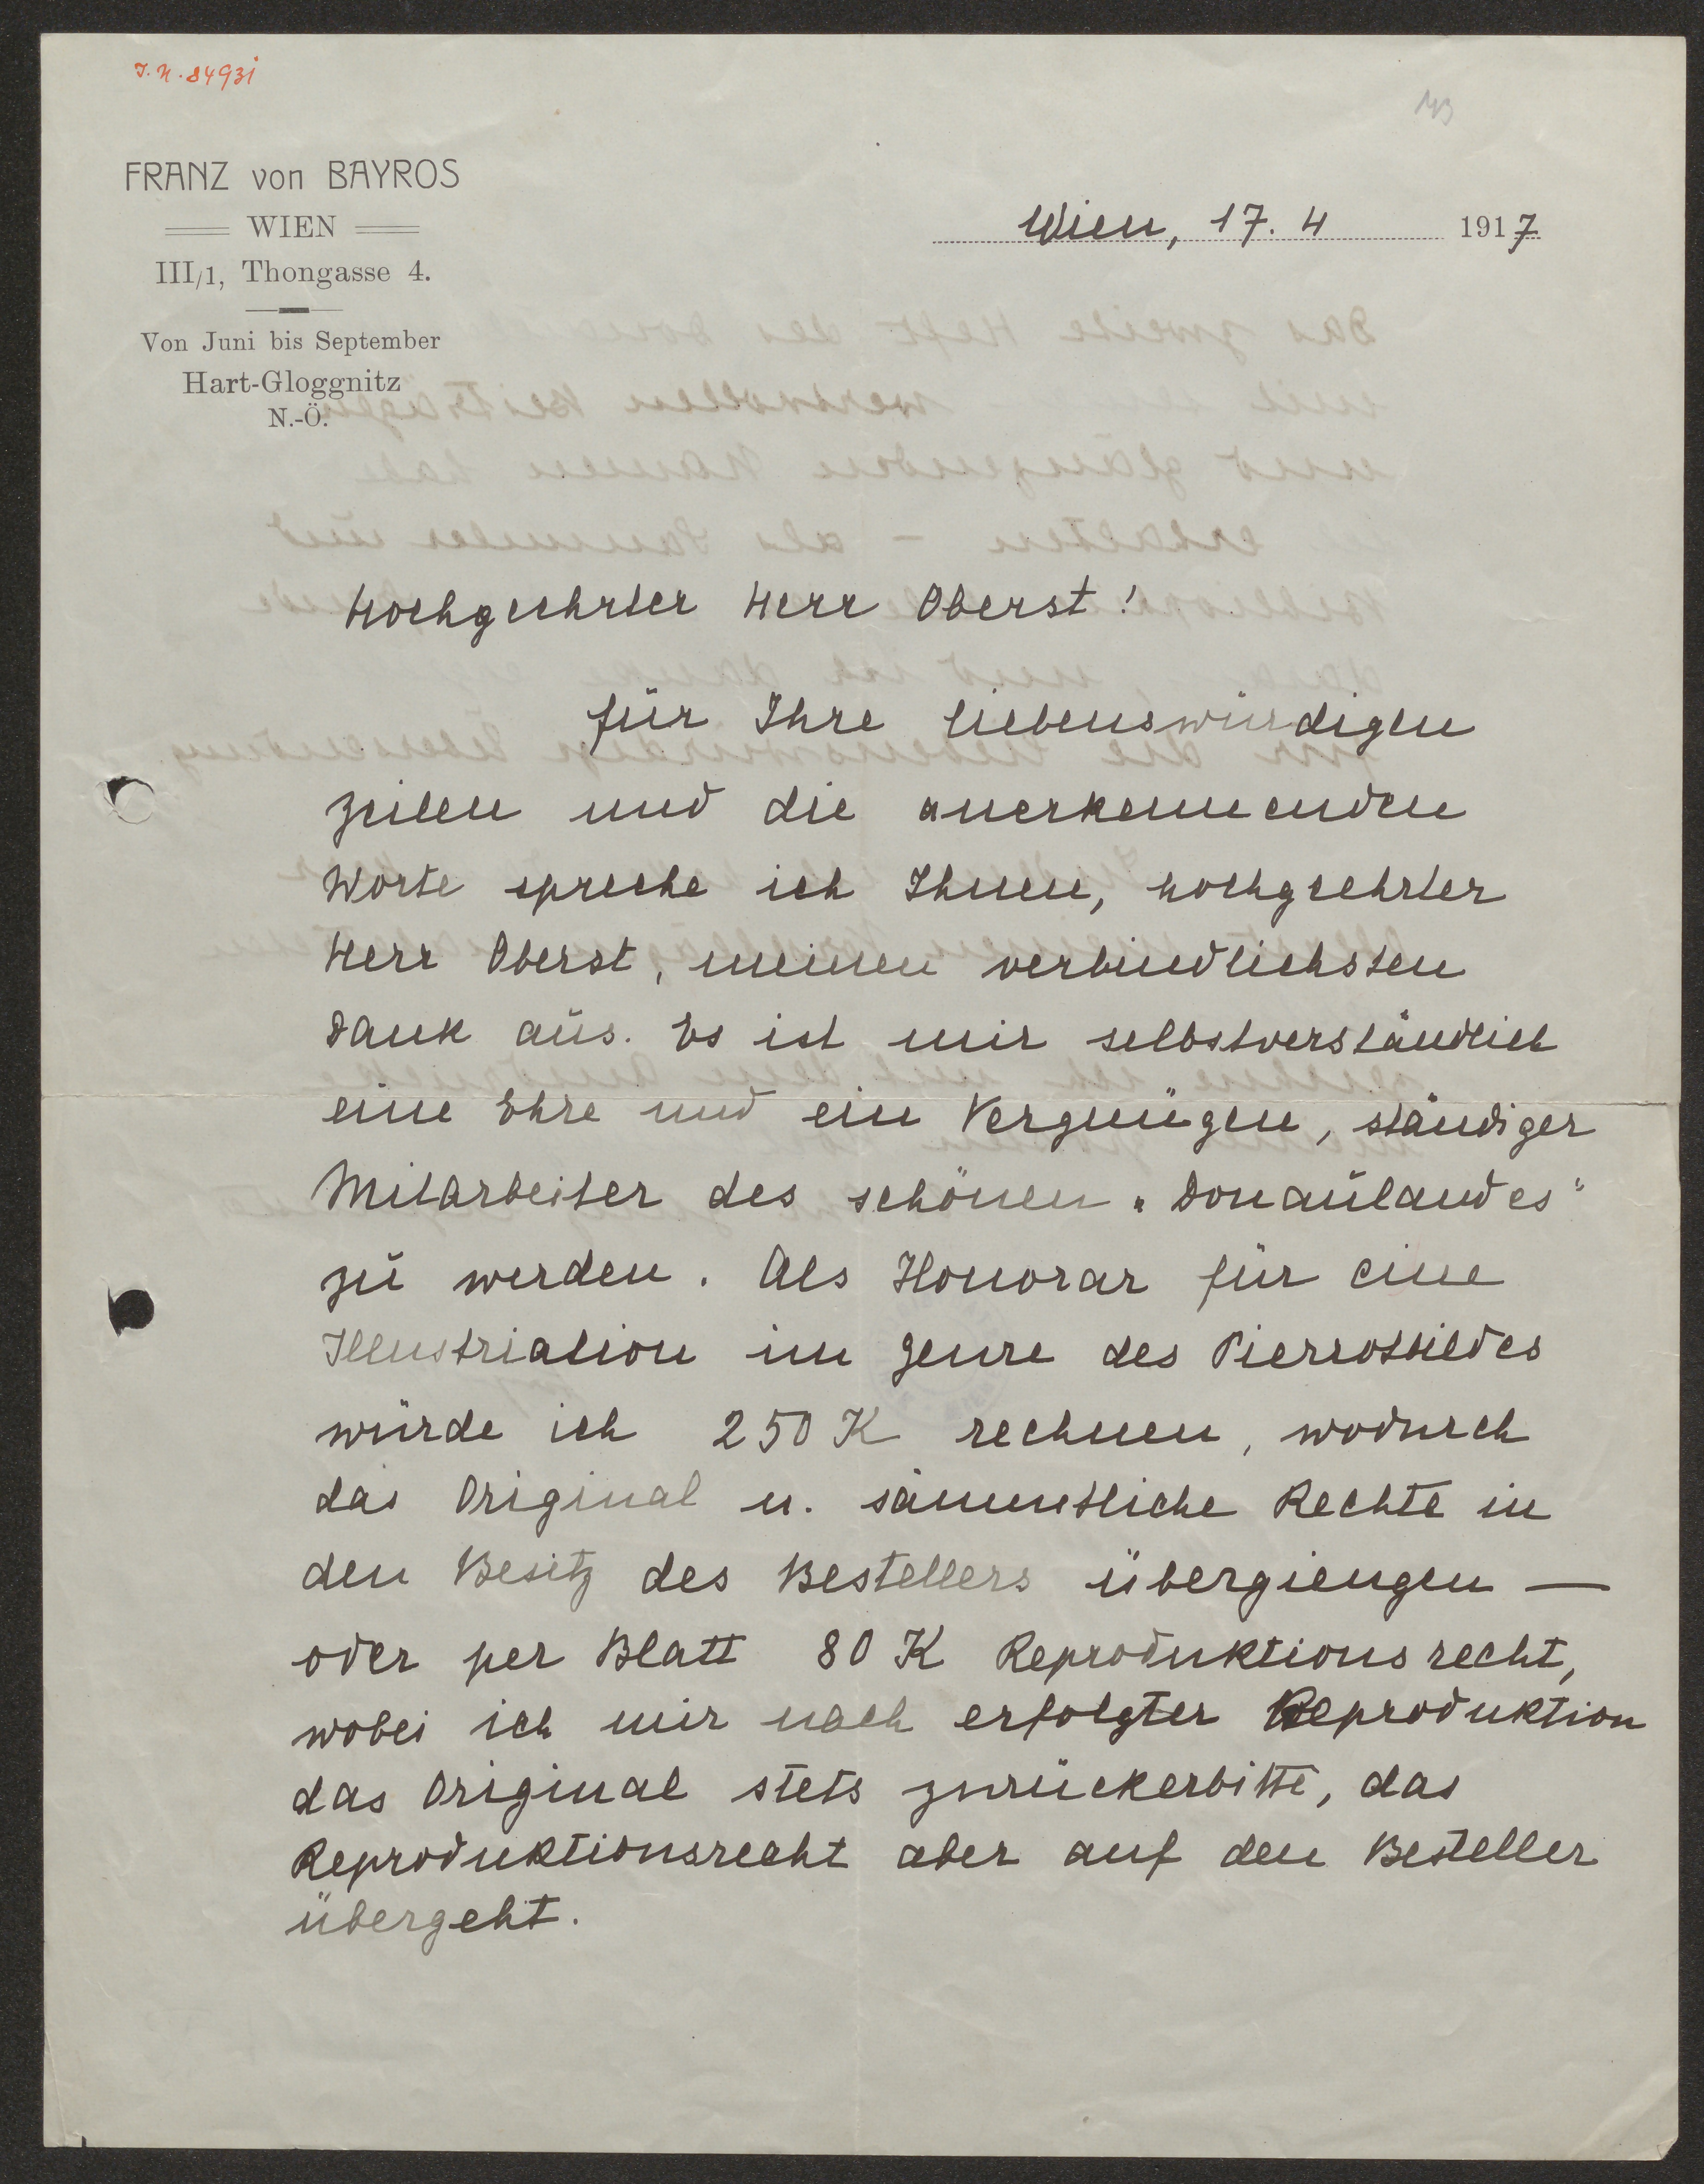 J.N. 84931
FRANZ von BAYROS
WIEN
III/1, Thongasse 4.
Von Juni bis September
Hart-Gloggnitz
N.-Ö.
Wien, 17. 4 1917
Hochgeehrter Herr Oberst!
für Ihre liebenswürdigen
Zeilen und die anerkennenden
Worte spreche ich Ihnen, hochgeehrter
Herr Oberst, meinen verbindlichsten
Dank aus. Es ist mir selbstverständlich
eine Ehre und ein Vergnügen, ständiger
Mitarbeiter des schönen „Donaulandes“
zu werden. Als Honorar für eine
Illustriation im Genre des Pierrotbildes
würde ich 250 K rechnen, wodurch
das Original u. sämmtliche Rechte in
den Besitz des Bestellers übergiengen —
oder per Blatt 80 K Reproduktionsrecht,
wobei ich mir nach erfolgter Reproduktion
das Original stets zurückerbitte, das
Reproduktionsrecht aber auf den Besteller
übergeht.